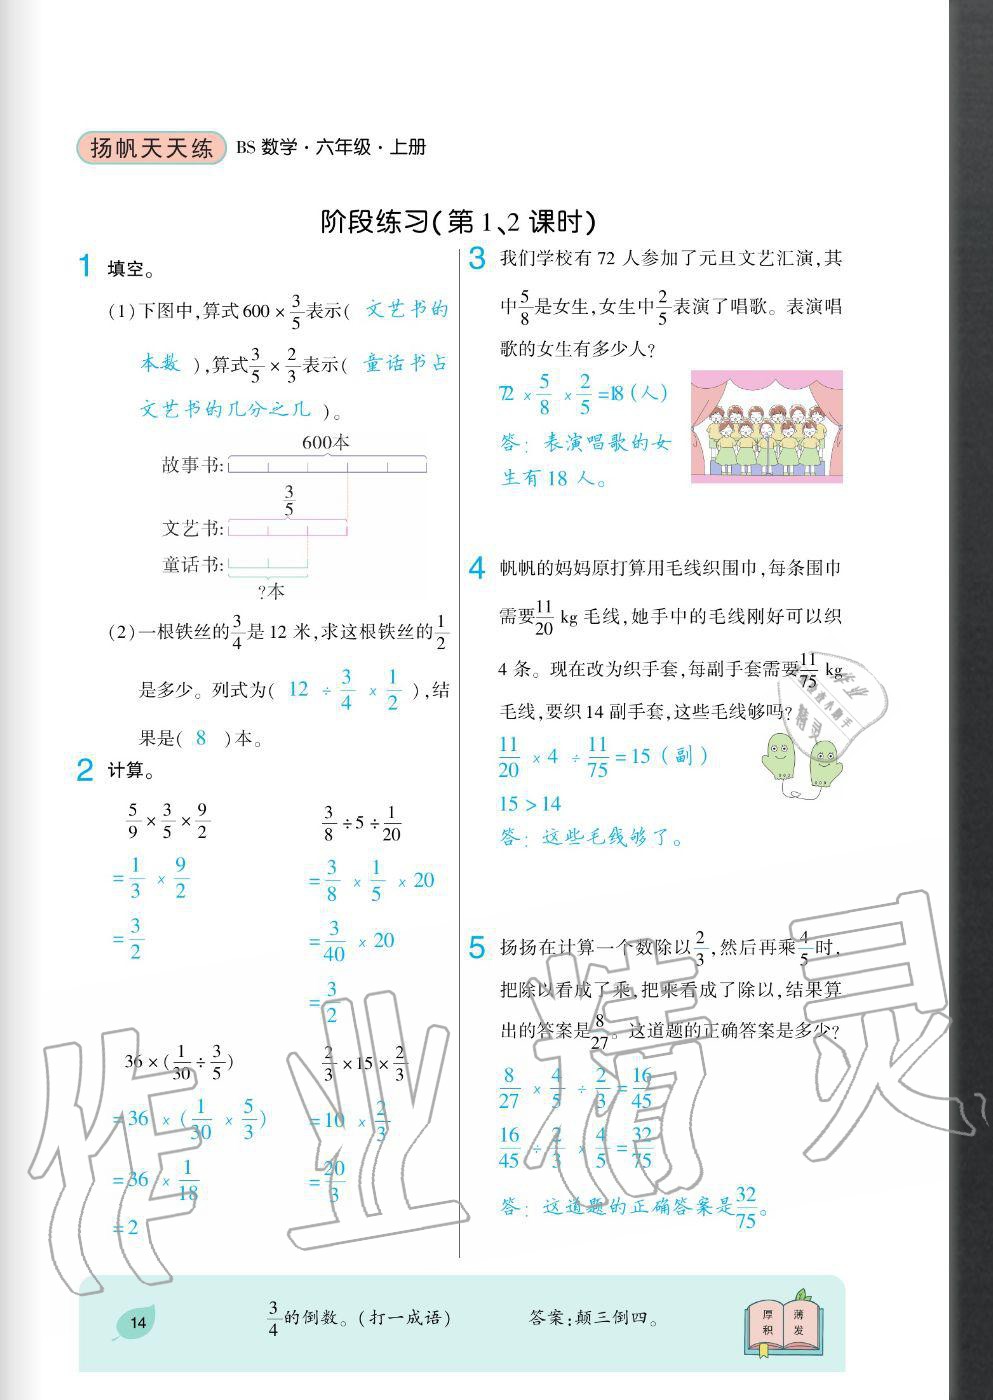 扬帆天天练 BS 数学·六年级·上册
阶段练习(第 1、2 课时)
1 填空。
(1)下图中,算式 600 × 3/5 表示( 文艺书的
本数 ),算式 3/5 × 2/3 表示( 童话书占
文艺书的几分之几 )。
600本
故事书:
3/5
文艺书:
童话书:
?本
(2)一根铁丝的 3/4 是 12 米,求这根铁丝的 1/2
是多少。列式为( 12 ÷ 3/4 × 1/2 ),结
果是( 8 )本。
2 计算。
5/9 × 3/5 × 9/2
= 1/3 × 9/2
= 3/2
3/8 ÷ 5 ÷ 1/20
= 3/8 × 1/5 × 20
= 3/40 × 20
= 3/2
36 × (1/30 ÷ 3/5)
= 36 × (1/30 × 5/3)
= 36 × 1/18
= 2
2/3 × 15 × 2/3
= 10 × 2/3
= 20/3
3 我们学校有 72 人参加了元旦文艺汇演,其
中 5/8 是女生,女生中 2/5 表演了唱歌。表演唱
歌的女生有多少人?
72 × 5/8 × 2/5 = 18 (人)
答: 表演唱歌的女
生有 18 人。
4 帆帆的妈妈原打算用毛线织围巾,每条围巾
需要 11/20 kg 毛线,她手中的毛线刚好可以织
4 条。现在改为织手套,每副手套需要 11/75 kg
毛线,要织 14 副手套,这些毛线够吗?
11/20 × 4 ÷ 11/75 = 15 (副)
15 > 14
答: 这些毛线够了。
5 扬扬在计算一个数除以 2/3,然后再乘 4/5 时,
把除以看成了乘,把乘看成了除以,结果算
出的答案是 8/27。这道题的正确答案是多少?
8/27 × 4/5 ÷ 2/3 = 16/45
16/45 ÷ 2/3 × 4/5 = 32/75
答: 这道题的正确答案是 32/75。
作业精灵
14
3/4 的倒数。(打一成语) 答案:颠三倒四。
厚积 薄发